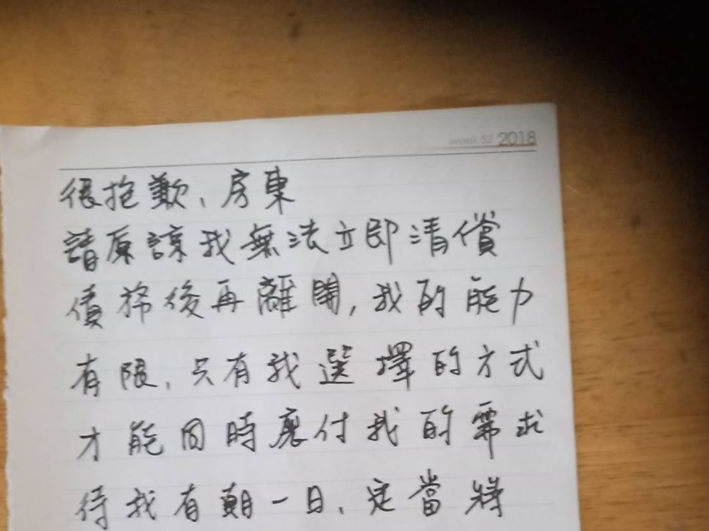 week 52 2018
很抱歉、房東
請原諒我無法立即清償
債務後再離開,我的能力
有限,只有我選擇的方式
才能同時應付我的需求
待我有朝一日、定當將